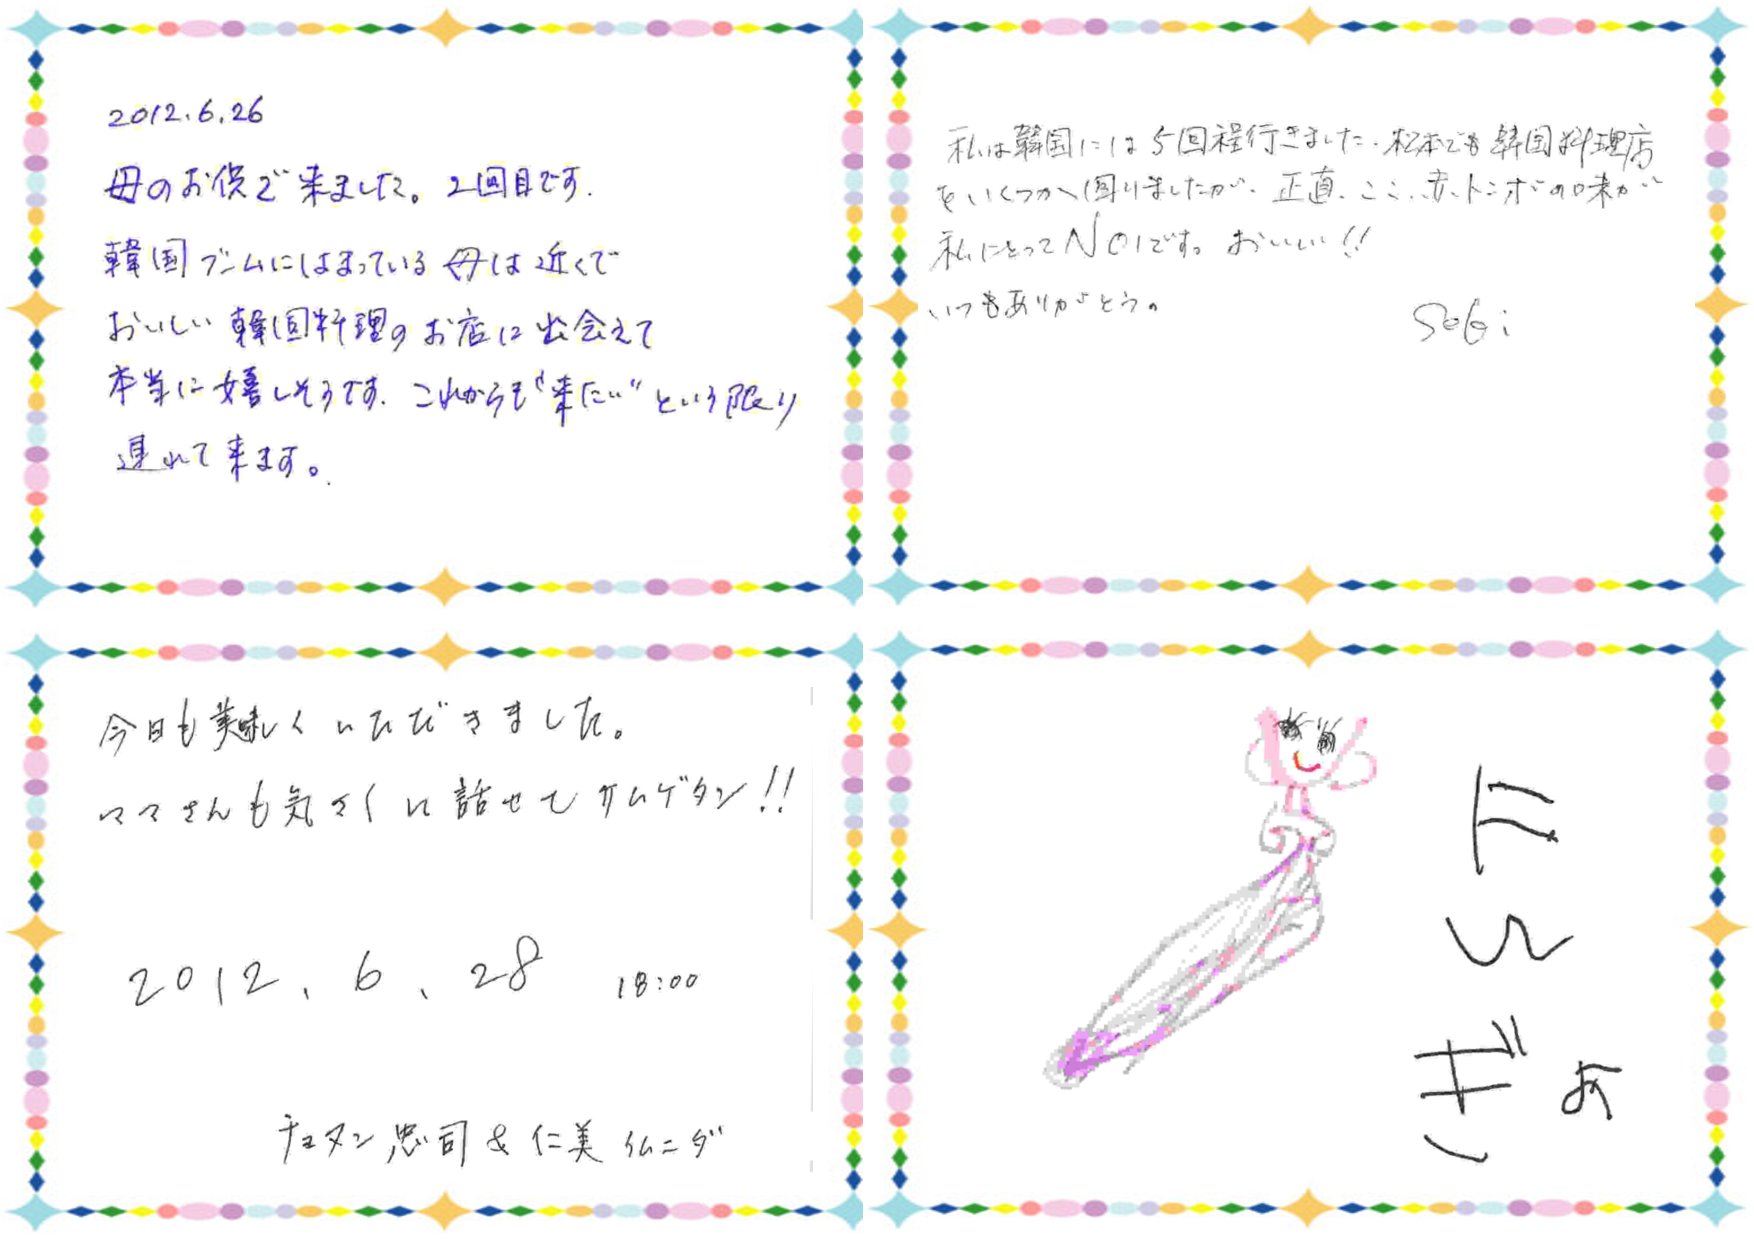 2012.6.26
母のお供で来ました。2回目です.
韓国ブームにはまっている母は近くで
おいしい韓国料理のお店に出会えて
本当に嬉しそうです. これからも“来たい”という限り
連れて来ます。
私は韓国には5回程行きました.松本でも韓国料理店
をいくつか回りましたが、正直、ここ.赤トンボの味が
私にとってNO1です。おいしい!!
いつもありがとう。
SeGi
今日も美味しくいただきました。
ママさんも気さくに話せてサムゲタン!!
2012.6.28 18:00
チョヌン忠司&仁美イムニダ